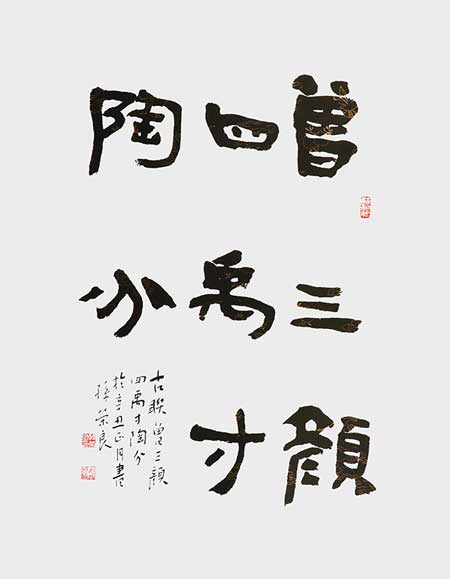 曾三顔
四禹寸
陶分
古联曾三顔
四禹寸陶分
於辛丑正月書
孫榮良